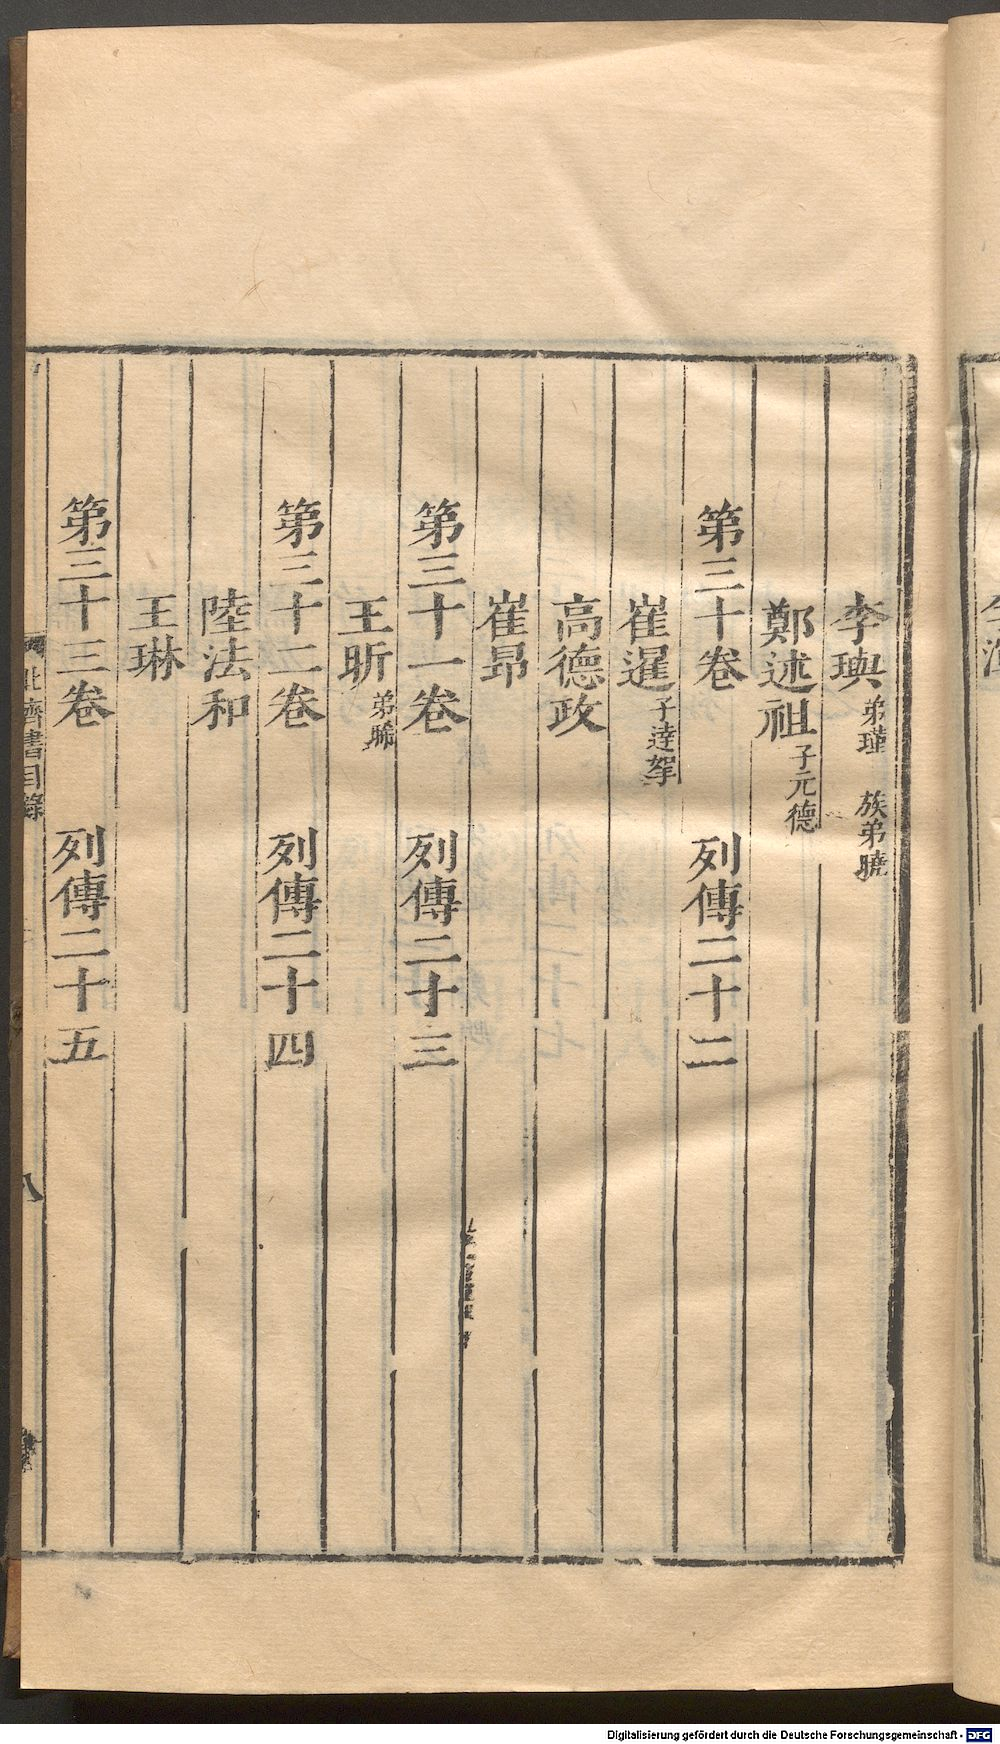 李璵 弟瑾 族弟曉
鄭述祖 子元德
第三十卷 列傳二十二
崔暹 子達拏
高德政
崔昂
第三十一卷 列傳二十三
王昕 弟晞
第三十二卷 列傳二十四
陸法和
王琳
第三十三卷 列傳二十五
北齊書目錄 八
Digitalisierung gefördert durch die Deutsche Forschungsgemeinschaft - DFG